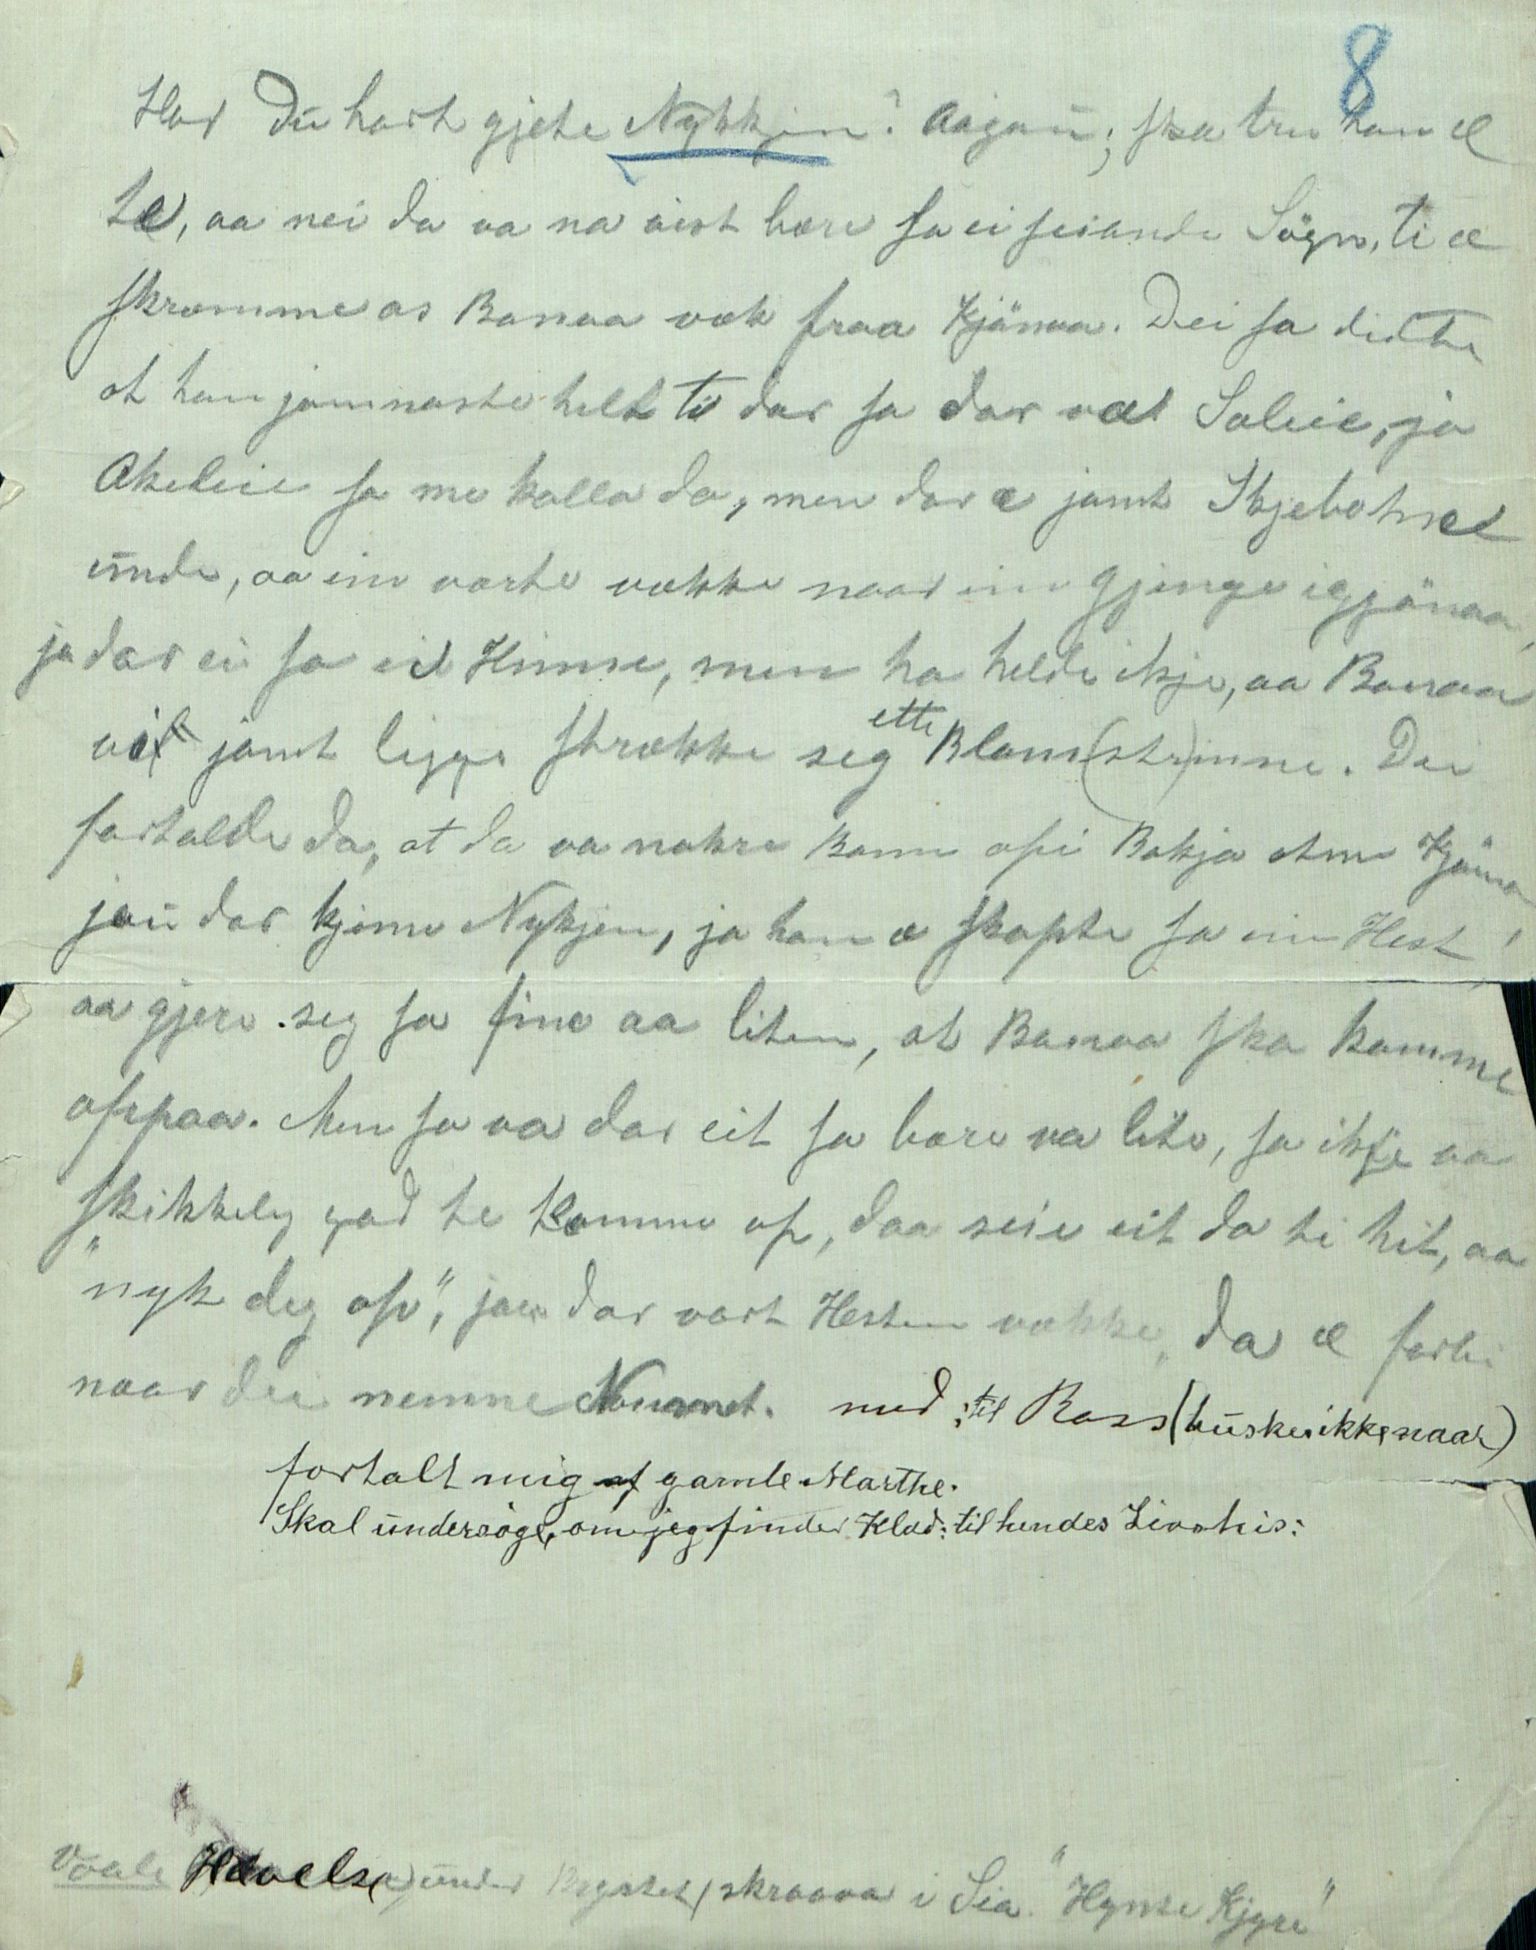 8
Har Du hørt gjete Nykkjin? Aajau; ska tru han æ
te, aa nei da va na vist bare sa ei seiande Sögn, ti æ
skræmme os Banaa væk fraa Kjänaa. Dei sa dette
at han jamnaste helt ti dar sa dar væx Soleie, ja
Akeleie sa me kalla da, men dar æ jamt Skjebotnet
unde, aa ein varte vække naar ein gjenge igjönaa,
ja dar ei sa eit Hinne, men ha helde ikje, aa Banaa
vil jamt ligge strække seg ette Blom(str)inne. Dei
fortalde da, at da va nokre Bann opi Bakja atme Kjäna
jau dar kjeme Nykjen, ja han æ skapte sa ein Hest,
aa gjere seg sa fine aa liten, at Banaa ska komme
oppaa. Men sa va dar eit sa bare va lite, sa ikje va
skikkeleg gad te komme op, daa seie eit da ti hit, aa
"nyk deg op", jau dar vart Hesten vække, da æ forbi
naar dei nemne Naunet. ned: til Ross (husker ikke naar)
fortalt mig af gamle Marthe.
Skal undersöge, om jeg finder Klad: til hendes Livshis:
Voale Hævelse, under Brystet, skraava i Sia. "Hynse Kjyre"